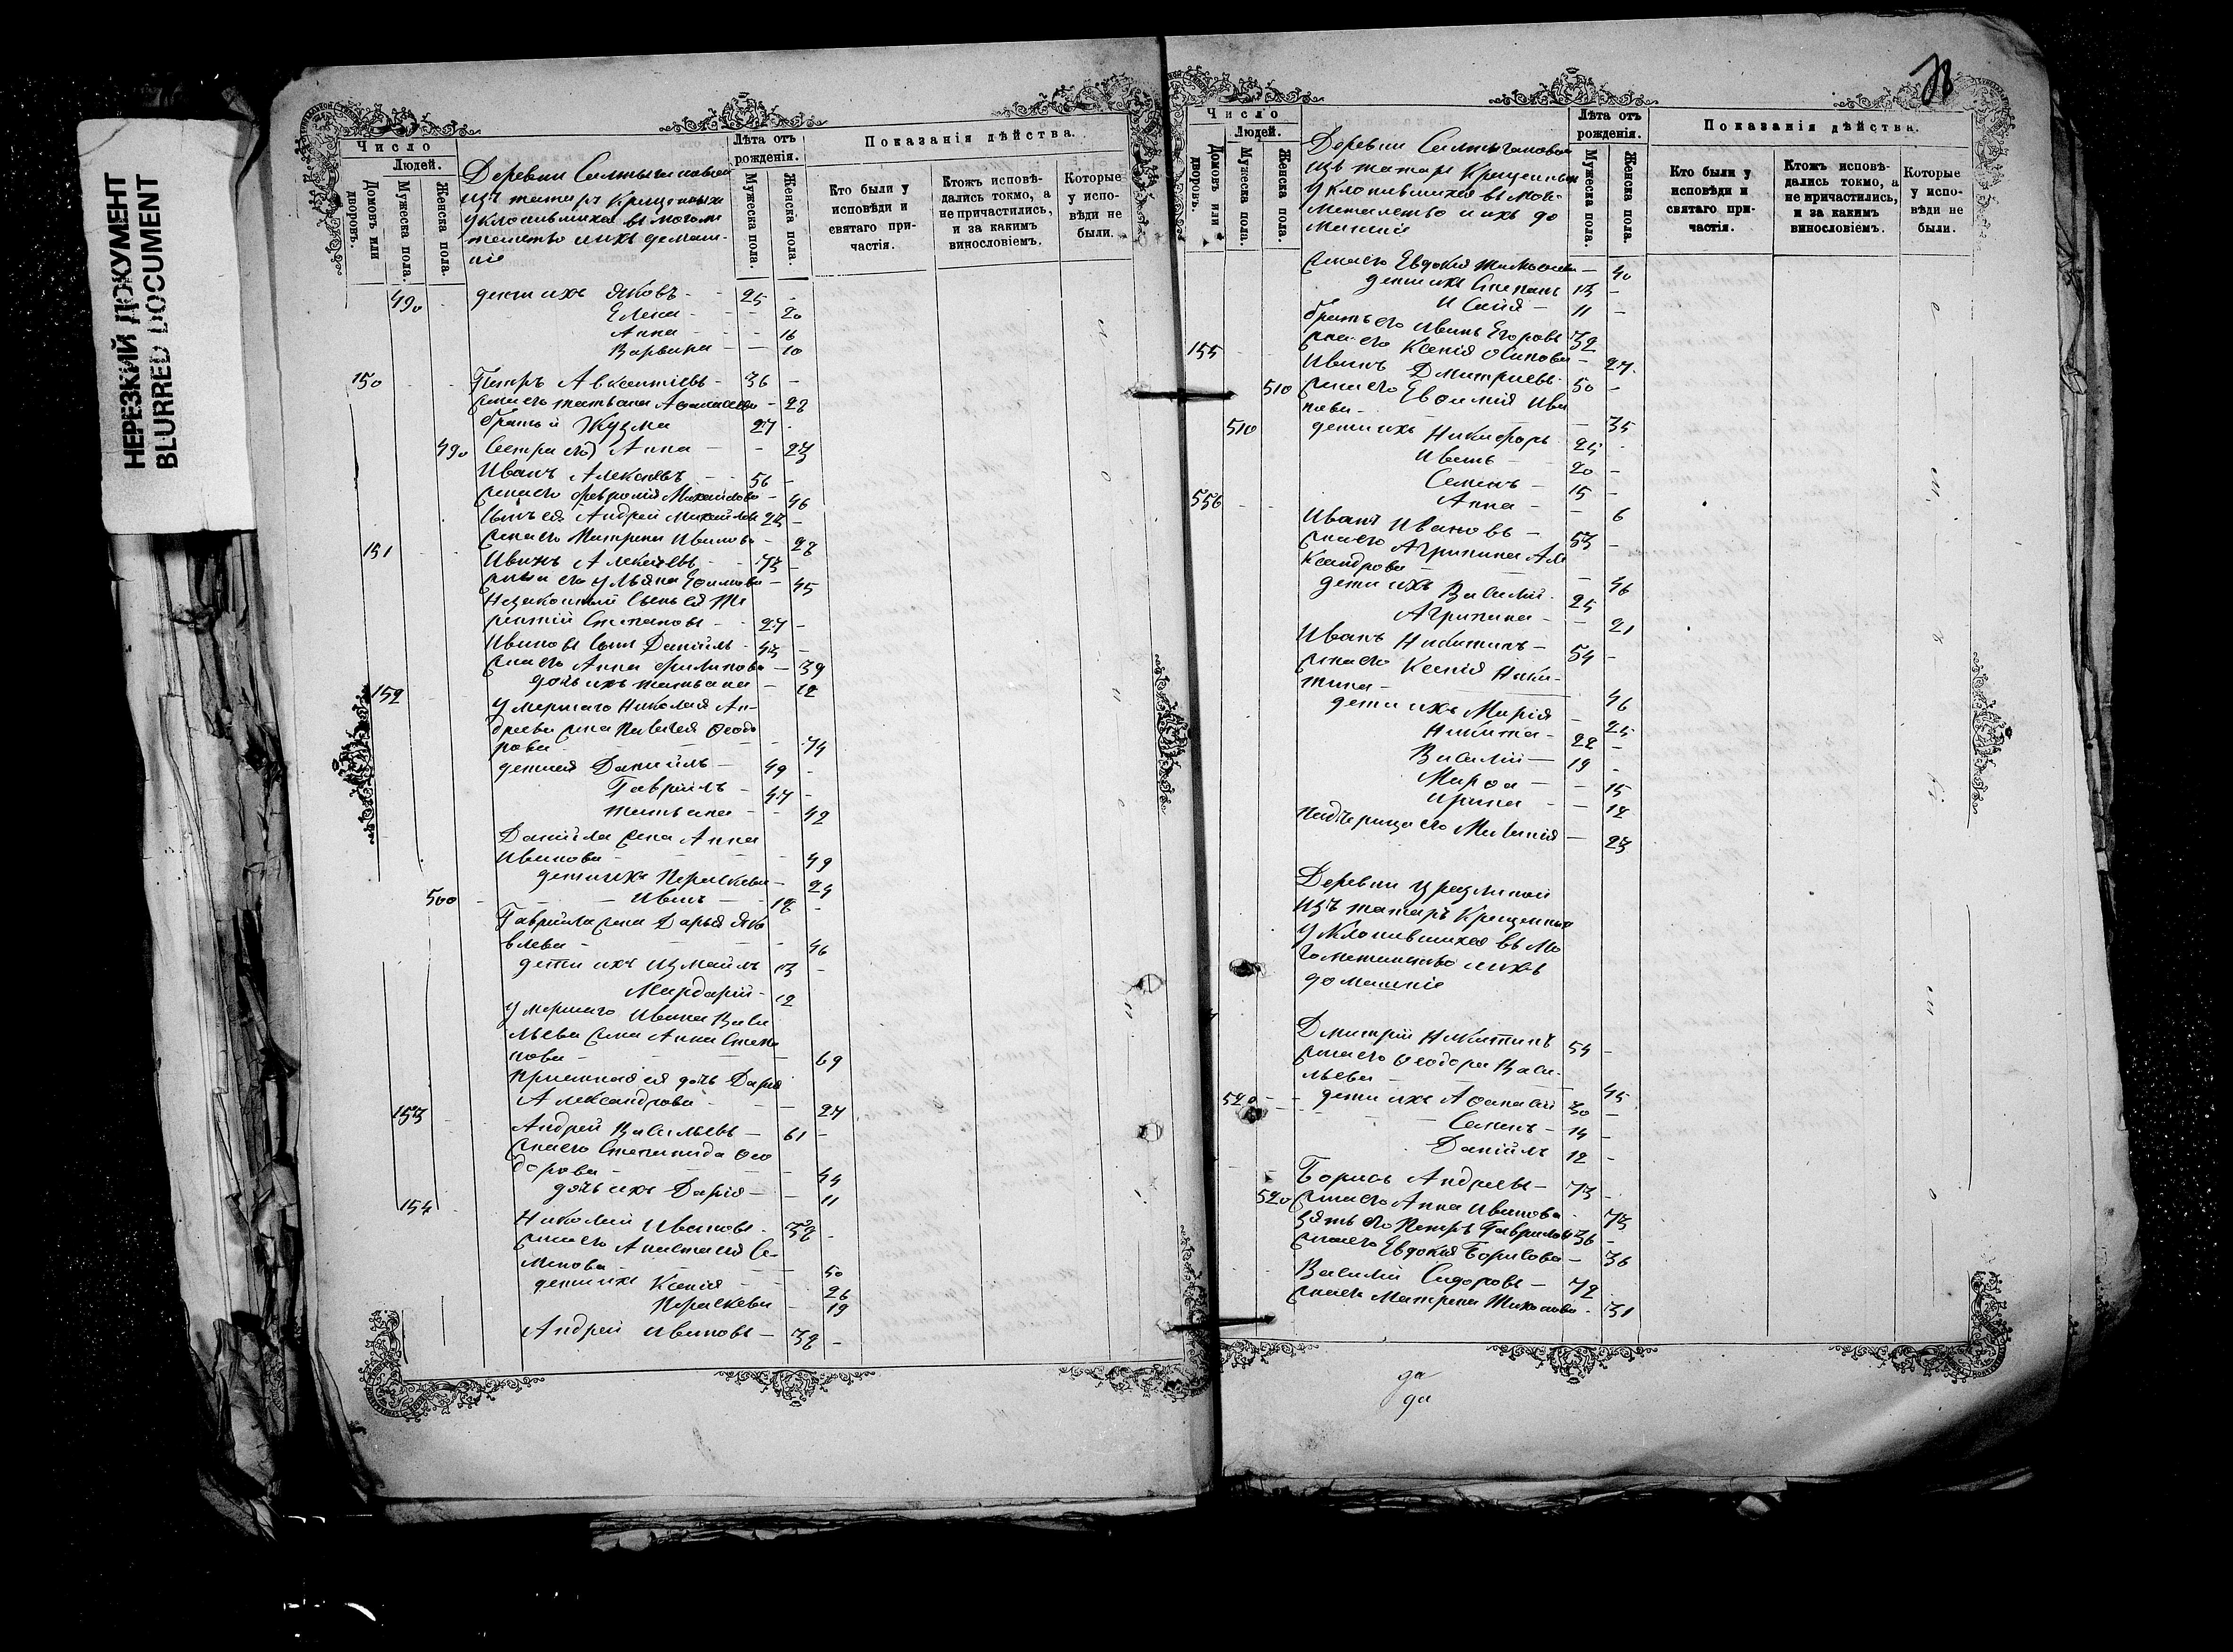 НЕРЕЗКИЙ ДОКУМЕНТ
BLURRED DOCUMENT
Число
Людей.
Домовъ или дворовъ.
Мужеска пола.
Женска пола.
Деревни
изъ татаръ Крещеныхъ
уклонившихся въ магоме
танство и ихъ домаш-
ніе
Лѣта отъ рожденія.
Мужеска пола.
Женска пола.
Показанія дѣйства.
Кто были у исповѣди и святаго при-частія.
Ктожъ исповѣ-дались токмо, а не причастились, и за какимъ винословіемъ.
Которые у испо-вѣди не были.
490 - дети ихъ Яковъ - 25 -
Елена - - - 20
Анна - - - 16
Варвара - - 10
150 - - Петръ Авксентіевъ - 36 -
жена его татьяна Афанасьева - 28
братъ й Кузма 27 -
490 Сестра его Анна - - 23
Иванъ Алексѣевъ - 56 -
жена его Февронія Михайлова - 46
Сынъ ея Андрей Михайловъ 23 -
жена его Матрена Иванова - 28
151 Иванъ Алексѣевъ - 73 -
жена его Ульяна Ефимова - 45
Незаконный Сынъ ея Те
рентій Степановъ - 27 -
Ивановъ Сынъ Даніилъ - 43 -
жена его Анна Филипова - 39
дочь ихъ татьяна - 12
152 умершаго Николая Ан-
дреева жена Пелагея Феодо
рова - - - 74
дети ея Даніилъ - 49 -
Гавріилъ - 47 -
татьяна - - 42
Даніила жена Анна
Иванова - - - 49
дети ихъ Параскева - 24
500 - - Иванъ - 18 -
Гавріила жена Дарья Яко
влева - - - 46
дети ихъ Измаилъ 13 -
Мардарій - 12
умершаго Ивана Васи
льева жена Анна Степа
нова - - - 69
Приемная ея дочь Дарія
Александрова - - 27
153 - Андрей Васильевъ - 61 -
жена его Степанида Фео
дорова - - - 44
дочь ихъ Дарія - - 11
154 Николай Ивановъ - 38 -
жена его Анастасія Се-
менова - - - 50
дети ихъ Ксенія - - 26
Параскева - 19
Андрей Ивановъ - 38 -
Число
Людей.
Домовъ или дворовъ.
Мужеска пола.
Женска пола.
Деревни
изъ татаръ Крещенныхъ
уклонившихся въ Мого-
метанство и ихъ до
машніе
Лѣта отъ рожденія.
Мужеска пола.
Женска пола.
Показанія дѣйства.
Кто были у исповѣди и святаго при-частія.
Ктожъ исповѣ-дались токмо, а не причастились, и за какимъ винословіемъ.
Которые у испо-вѣди не были.
жена его Евдокія - 40
дети ихъ Степанъ 13 -
Исаія - 11 -
братъ его Иванъ Егоровъ 32
жена его Ксенія Осипова - 27
155 - - Иванъ Дмитріевъ 50 -
510 жена его Евфимія Ива
нова - - - 35
510 дети ихъ Никифоръ 25 -
Иванъ - 20 -
Семенъ - 15 -
Анна - - 6
556 - - Иванъ Ивановъ - 53 -
жена его Агрипина Але
ксандрова - - 46
дети ихъ Василій 25 -
Агрипина - - 21
Иванъ Никитинъ - 54 -
жена его Ксенія Ники-
тина - - 46
дети ихъ Марія - 25
Никита - 22 -
Василій - 19 -
Марфа - - 15
Ирина - - 12
Падчерица его Меланія - 23
Деревни
изъ татаръ Крещенныхъ
уклонившихся въ Мо
гометанство и ихъ
домашніе
Дмитрій Никитинъ 54 -
жена его Феодора Васи-
льева - - 45
520 - - дети ихъ Афанасій 30 -
Семенъ - 14 -
Даніилъ 12 -
Борисъ Андреевъ - 73 -
520 жена его Анна Иванова - 73
зять его Петръ Гавриловъ 36 -
жена его Евдокія Борисова - 36
Василій Сидоровъ - 72
жена его Матрена Тихонова - 31
да
да